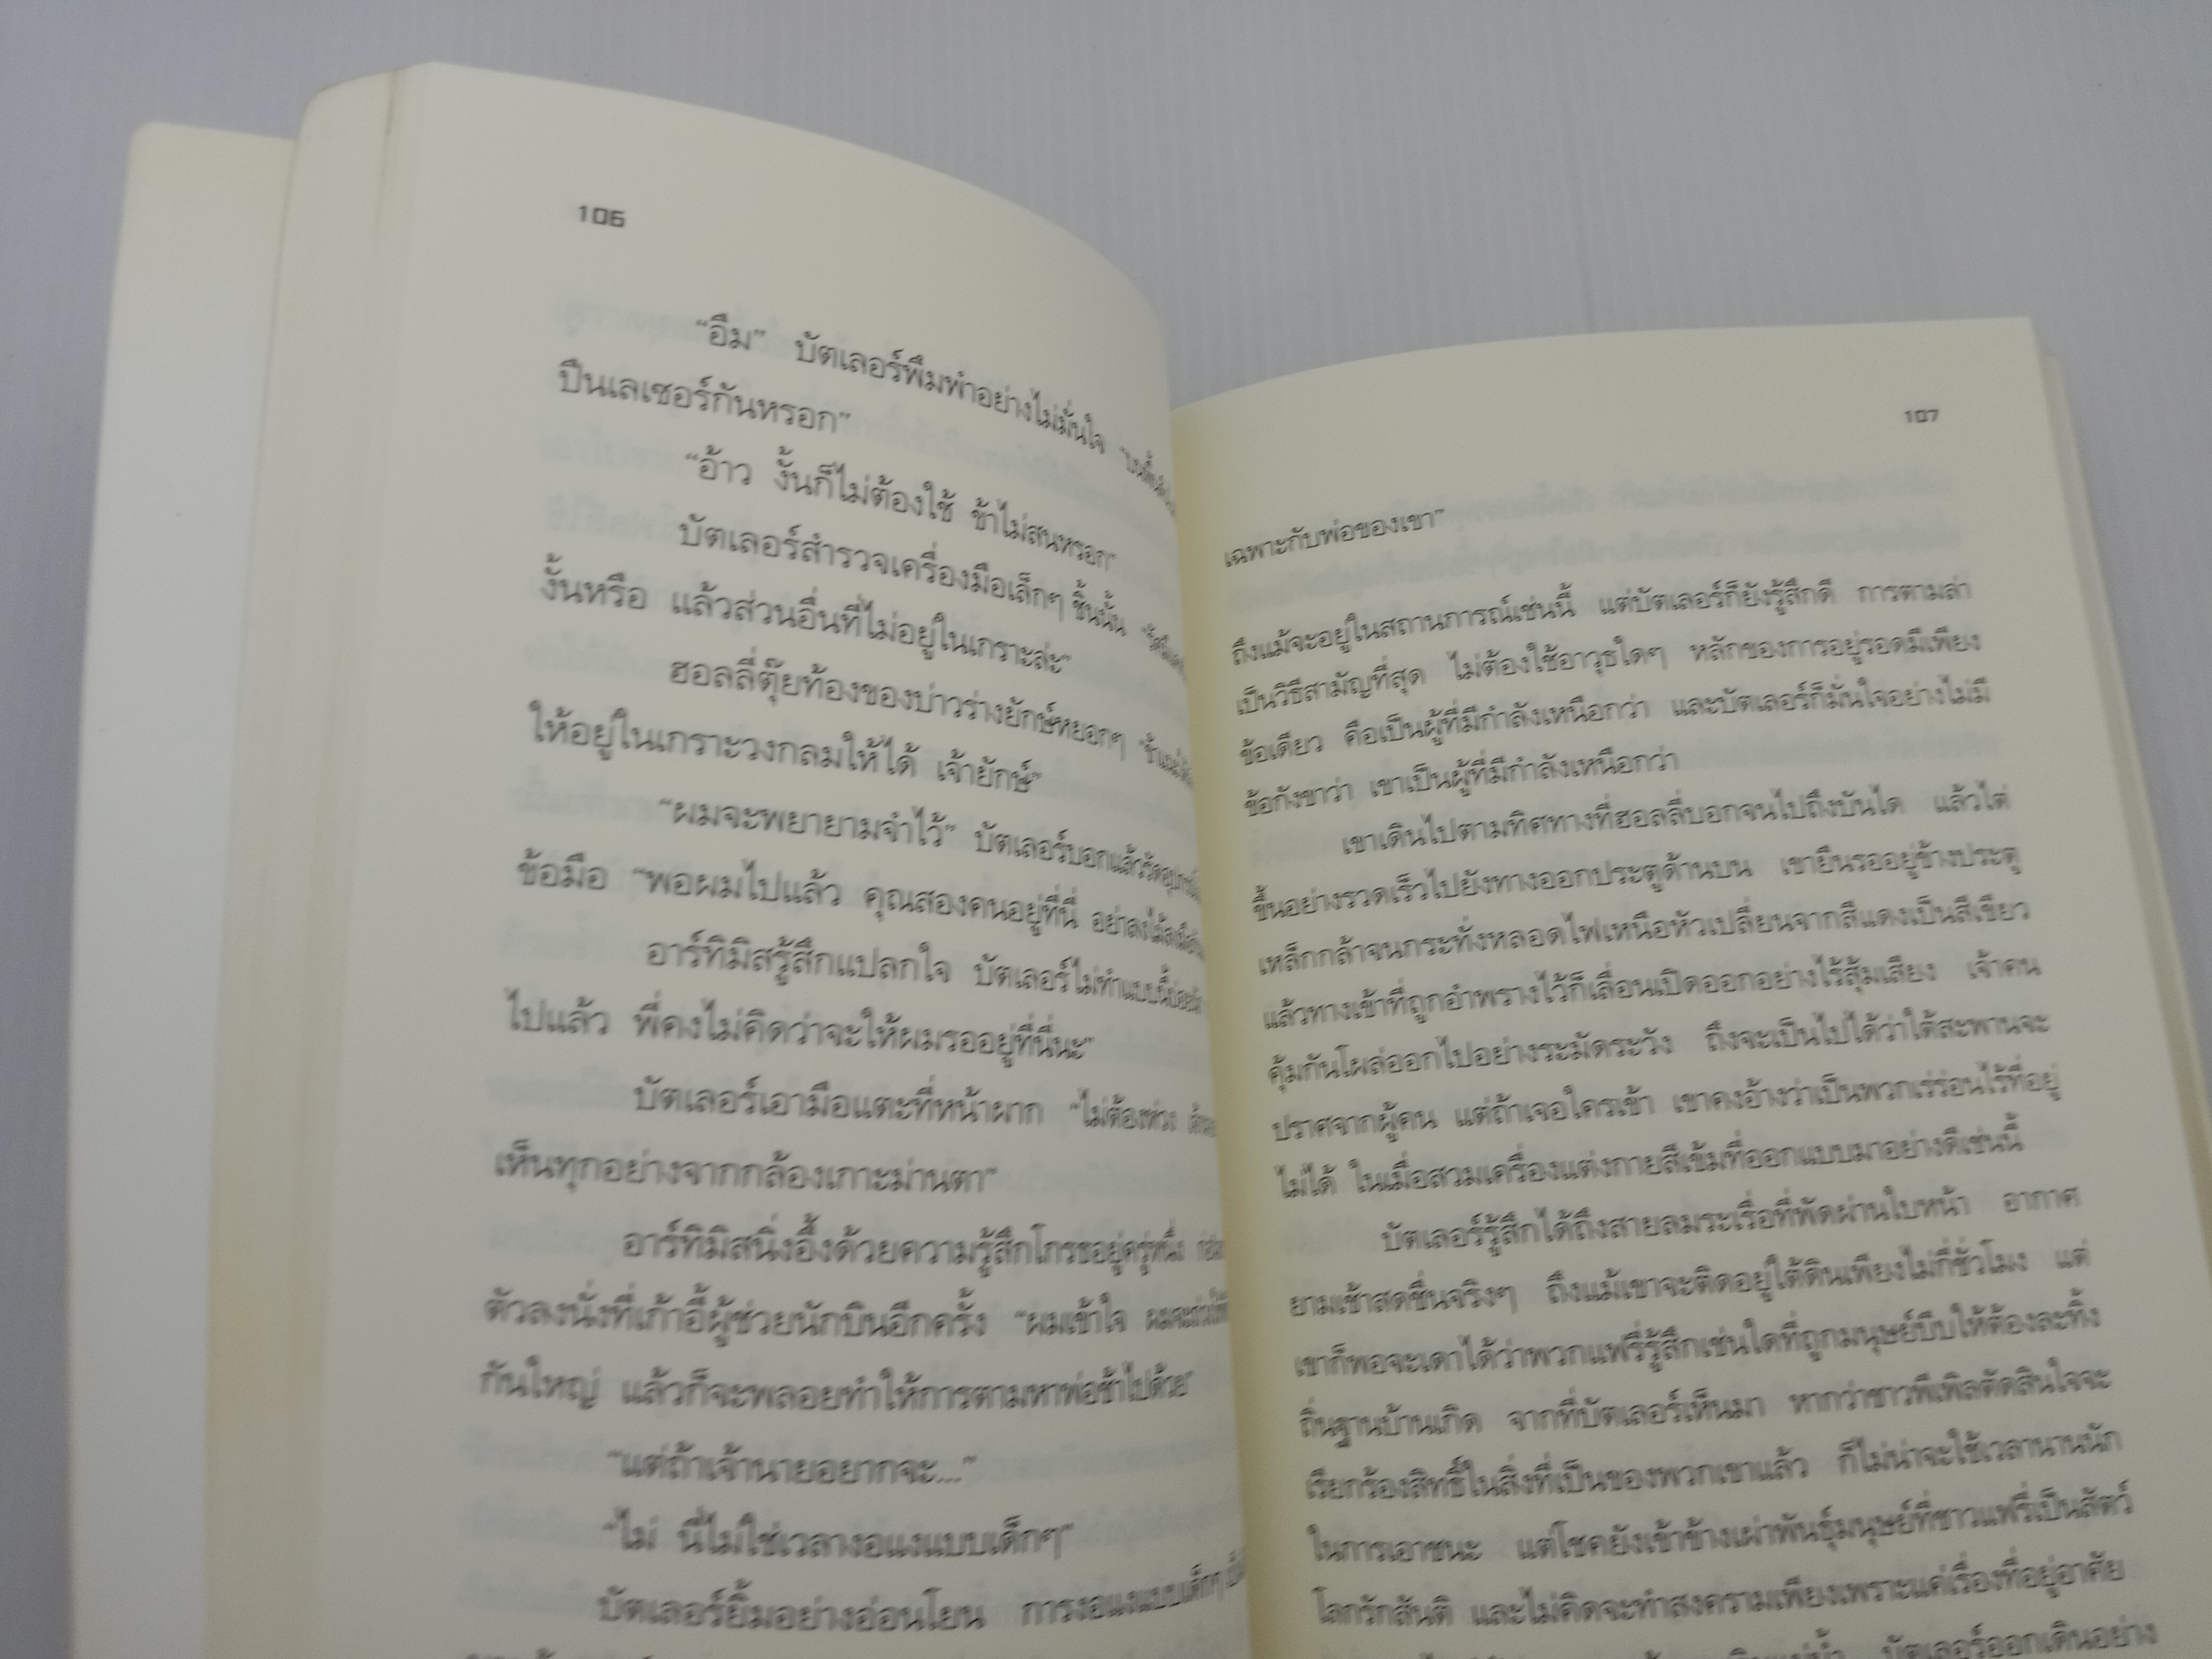 106
“อืม” บัตเลอร์พึมพำอย่างไม่มั่นใจ
ปืนเลเซอร์กันหรอก”
“อ้าว งั้นก็ไม่ต้องใช้ ข้าไม่สนหรอก”
บัตเลอร์สำรวจเครื่องมือเล็กๆ ชิ้นนั้น
งั้นหรือ แล้วส่วนอื่นที่ไม่อยู่ในเกราะล่ะ”
ฮอลลี่ตุ๊ยท้องของบ่าวร่างยักษ์หยอกๆ
ให้อยู่ในเกราะวงกลมให้ได้ เจ้ายักษ์”
“ผมจะพยายามจำไว้” บัตเลอร์บอกแล้ว
ข้อมือ “พอผมไปแล้ว คุณสองคนอยู่ที่นี่
อาร์ทิมิสรู้สึกแปลกใจ บัตเลอร์ไม่ทำแบบนี้
ไปแล้ว พี่คงไม่คิดว่าจะให้ผมรออยู่ที่นี่นะ”
บัตเลอร์เอามือแตะที่หน้าผาก “ไม่ต้องห่วง
เห็นทุกอย่างจากกล้องเกาะม่านตา”
อาร์ทิมิสนิ่งอึ้งด้วยความรู้สึกโกรธอยู่ครู่หนึ่ง
ตัวลงนั่งที่เก้าอี้ผู้ช่วยนักบินอีกครั้ง “ผมเข้าใจ
กันใหญ่ แล้วก็จะพลอยทำให้การตามหาพ่อช้าไปด้วย”
“แต่ถ้าเจ้านายอยากจะ...”
“ไม่ นี่ไม่ใช่เวลางอแงแบบเด็กๆ”
บัตเลอร์ยิ้มอย่างอ่อนโยน การงอแงแบบเด็กๆ
107
เฉพาะกับพ่อของเขา”
ถึงแม้จะอยู่ในสถานการณ์เช่นนี้ แต่บัตเลอร์ก็ยังรู้สึกดี การตามล่า
เป็นวิธีสามัญที่สุด ไม่ต้องใช้อาวุธใดๆ หลักของการอยู่รอดมีเพียง
ข้อเดียว คือเป็นผู้ที่มีกำลังเหนือกว่า และบัตเลอร์ก็มั่นใจอย่างไม่มี
ข้อกังขาว่า เขาเป็นผู้ที่มีกำลังเหนือกว่า
เขาเดินไปตามทิศทางที่ฮอลลี่บอกจนไปถึงบันได แล้วไต่
ขึ้นอย่างรวดเร็วไปยังทางออกประตูด้านบน เขายืนรออยู่ข้างประตู
เหล็กกล้าจนกระทั่งหลอดไฟเหนือหัวเปลี่ยนจากสีแดงเป็นสีเขียว
แล้วทางเข้าที่ถูกอำพรางไว้ก็เลื่อนเปิดออกอย่างไร้สุ้มเสียง เจ้าคน
คุ้มกันโผล่ออกไปอย่างระมัดระวัง ถึงจะเป็นไปได้ว่าใต้สะพานจะ
ปราศจากผู้คน แต่ถ้าเจอใครเข้า เขาคงอ้างว่าเป็นพวกเร่ร่อนไร้ที่อยู่
ไม่ได้ ในเมื่อสวมเครื่องแต่งกายสีเข้มที่ออกแบบมาอย่างดีเช่นนี้
บัตเลอร์รู้สึกได้ถึงสายลมระเรื่อที่พัดผ่านใบหน้า อากาศ
ยามเช้าสดชื่นจริงๆ ถึงแม้เขาจะติดอยู่ใต้ดินเพียงไม่กี่ชั่วโมง แต่
เขาก็พอจะเดาได้ว่าพวกแฟรี่รู้สึกเช่นใดที่ถูกมนุษย์บีบให้ต้องละทิ้ง
ถิ่นฐานบ้านเกิด จากที่บัตเลอร์เห็นมา หากว่าชาวพีเพิลตัดสินใจจะ
เรียกร้องสิทธิ์ในสิ่งที่เป็นของพวกเขาแล้ว ก็ไม่น่าจะใช้เวลานานนัก
ในการเอาชนะ แต่โชคยังเข้าข้างเผ่าพันธุ์มนุษย์ที่ชาวแฟรี่เป็นสัตว์
โลกรักสันติ และไม่คิดจะทำสงครามเพียงเพราะแค่เรื่องที่อยู่อาศัย
บัตเลอร์ออกเดินอย่าง